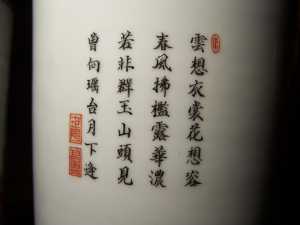 雲想衣裳花想容
春風拂檻露華濃
若非群玉山頭見
曾向瑤台月下逢